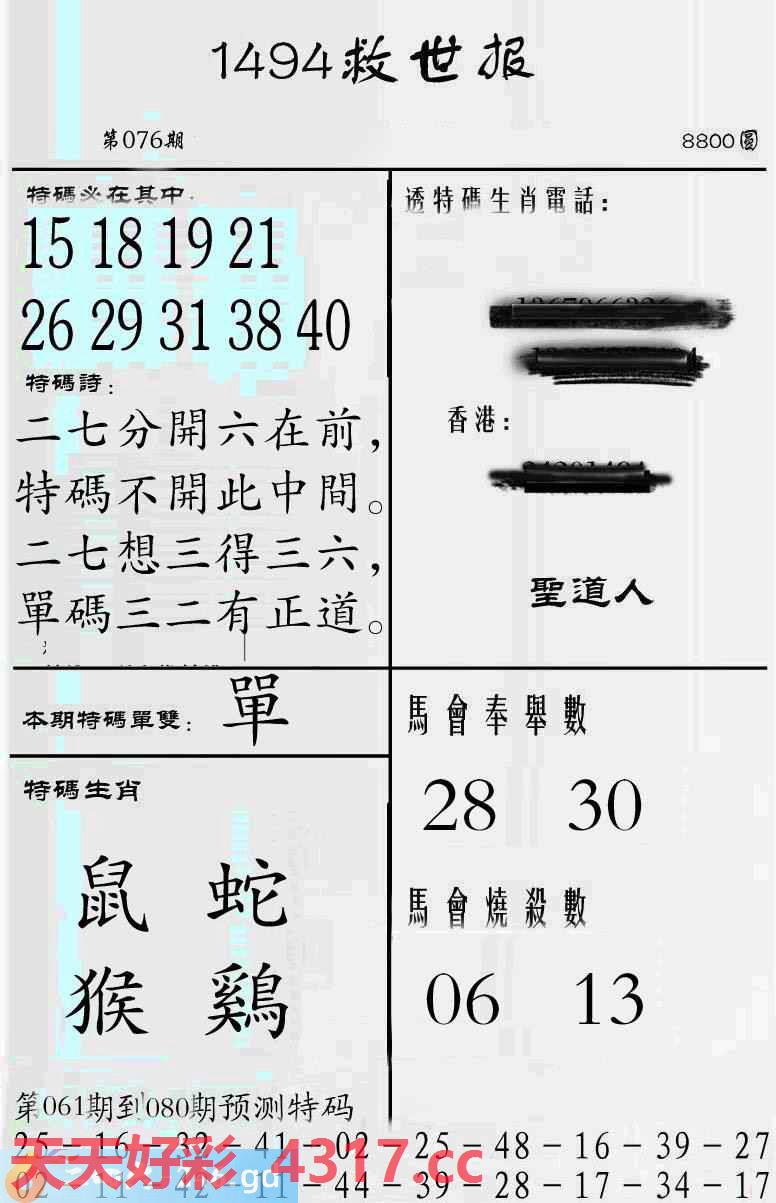 1494救世报
第076期
8800圆
特碼必在其中:
15 18 19 21
26 29 31 38 40
特碼詩:
二七分開六在前,
特碼不開此中間。
二七想三得三六,
單碼三二有正道。
透特碼生肖電話:
香港:
聖道人
本期特碼單雙: 單
特碼生肖
鼠 蛇
猴 鷄
馬會奉舉數
28 30
馬會燒殺數
06 13
第061期到080期预测特码
25-16-32-41-02-25-48-16-39-27
02-11-42-11-44-39-28-17-34-17
天天好彩 4317.cc